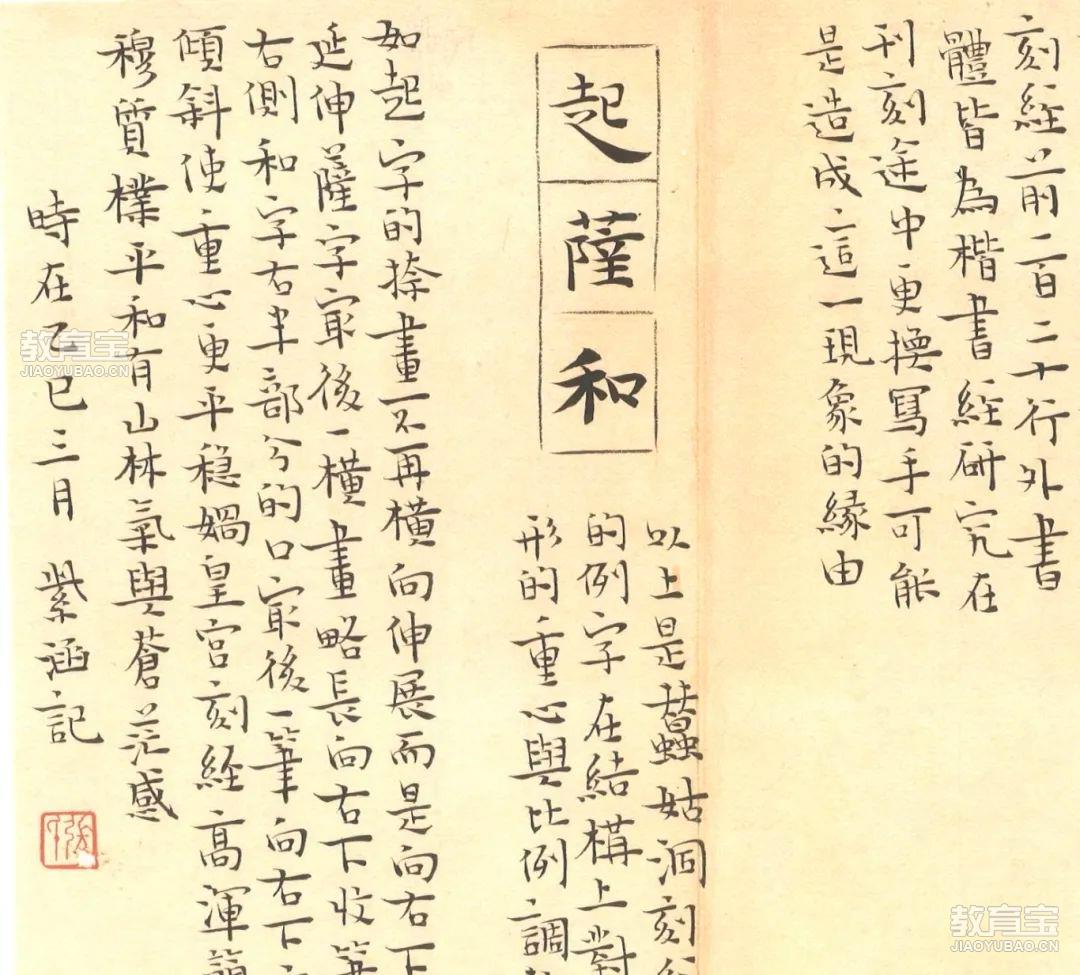 刻經前二百二十行外書
體皆為楷書經研究在
刊刻途中更換寫手可能
是造成這一現象的緣由
起
薩
和
以上是蠶姑洞刻
的例字在結構上對
形的重心與比例調
如起字的捺畫不再橫向伸展而是向右下
延伸薩字最後一橫畫略長向右下收筆
右側和字右半部分的口最後一筆向右下
傾斜使重心更平穩媧皇宮刻經高渾
穆質樸平和有山林氣與蒼茫感
時在乙巳三月 紫涵記
教育宝
JIAOYUBAO.CN
教育宝
JIAOYUBAO.CN